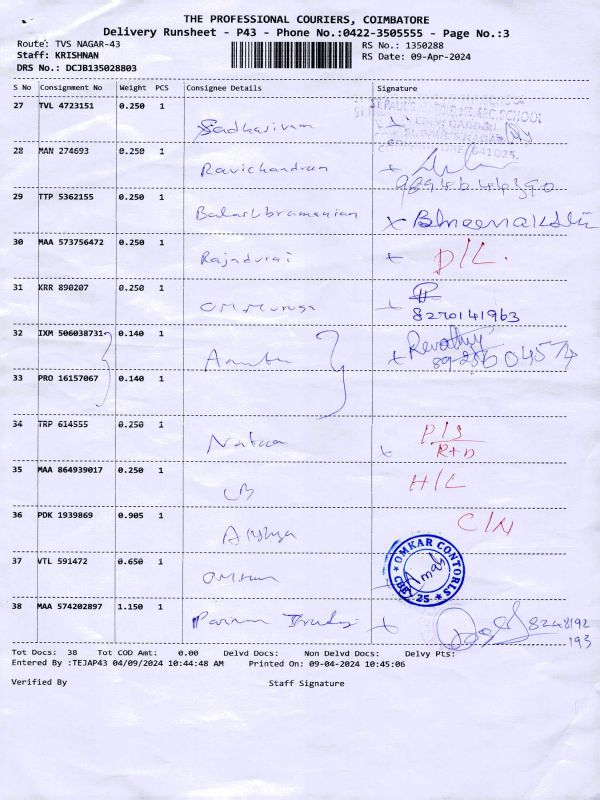 THE PROFESSIONAL COURIERS, COIMBATORE
Delivery Runsheet - P43 - Phone No.:0422-3505555 - Page No.:3
Route: TVS NAGAR-43 RS No.: 1350288
Staff: KRISHNAN RS Date: 09-Apr-2024
DRS No.: DCJB135028803
S No Consignment No Weight PCS Consignee Details Signature
27 TVL 4723151 0.250 1 Sadhasivam
28 MAN 274693 0.250 1 Ravichandran
29 TTP 5362155 0.250 1 Balasubramanian x Bmeenakshi
30 MAA 573756472 0.250 1 Rajadurai x D/L.
31 KRR 890207 0.250 1 x
8270141963
32 IXM 506038731 0.140 1 x Revathy
33 PRO 16157067 0.140 1
34 TRP 614555 0.250 1 x
35 MAA 864939017 0.250 1 H/L
36 PDK 1939869 0.905 1
37 VTL 591472 0.650 1 OMKAR CONTORLS CBE 25.
38 MAA 574202897 1.150 1 x 8248192
193
Tot Docs: 38 Tot COD Amt: 0.00 Delvd Docs: Non Delvd Docs: Delvy Pts:
Entered By :TEJAP43 04/09/2024 10:44:48 AM Printed On: 09-04-2024 10:45:06
Verified By Staff Signature